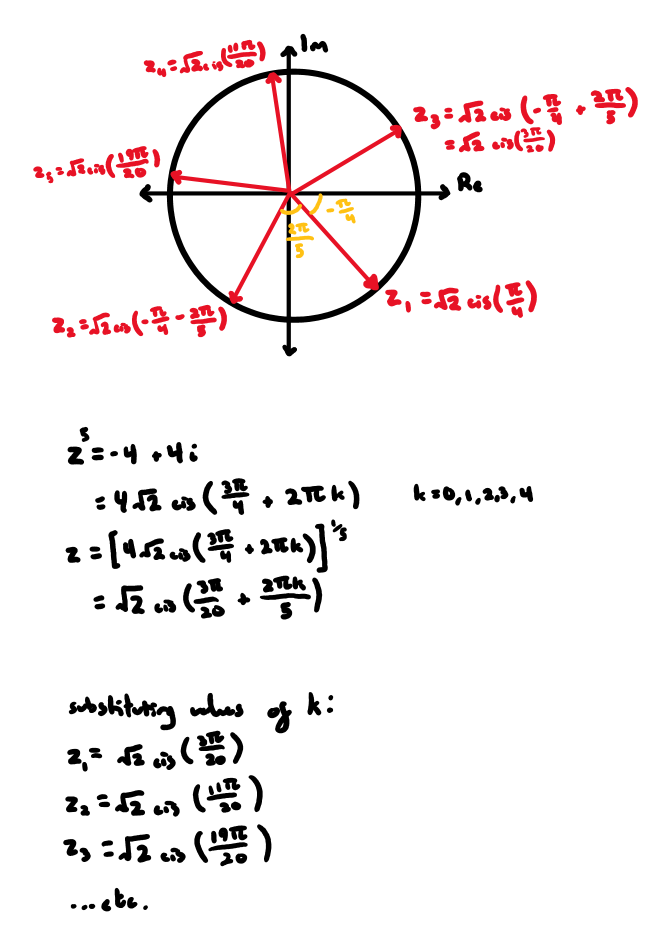 Im
z₄ = √2 cis(11π/20)
z₃ = √2 cis(-π/4 + 2π/5)
= √2 cis(3π/20)
z₅ = √2 cis(19π/20)
Re
-π/4
2π/5
z₁ = √2 cis(π/4)
z₂ = √2 cis(-π/4 - 2π/5)
z⁵ = -4 + 4i
= 4√2 cis(3π/4 + 2πk) k=0,1,2,3,4
z = [4√2 cis(3π/4 + 2πk)]^1/5
= √2 cis(3π/20 + 2πk/5)
substituting values of k:
z₁ = √2 cis(3π/20)
z₂ = √2 cis(11π/20)
z₃ = √2 cis(19π/20)
...etc.